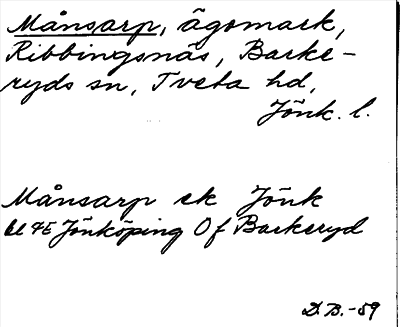 Månsarp, ägomark,
Ribbingsnäs, Barke-
ryds sn, Tveta hd,
Jönk. l.
Månsarp ek Jönk
bl 4E Jönköping Of Barkeryd
D.B.-59